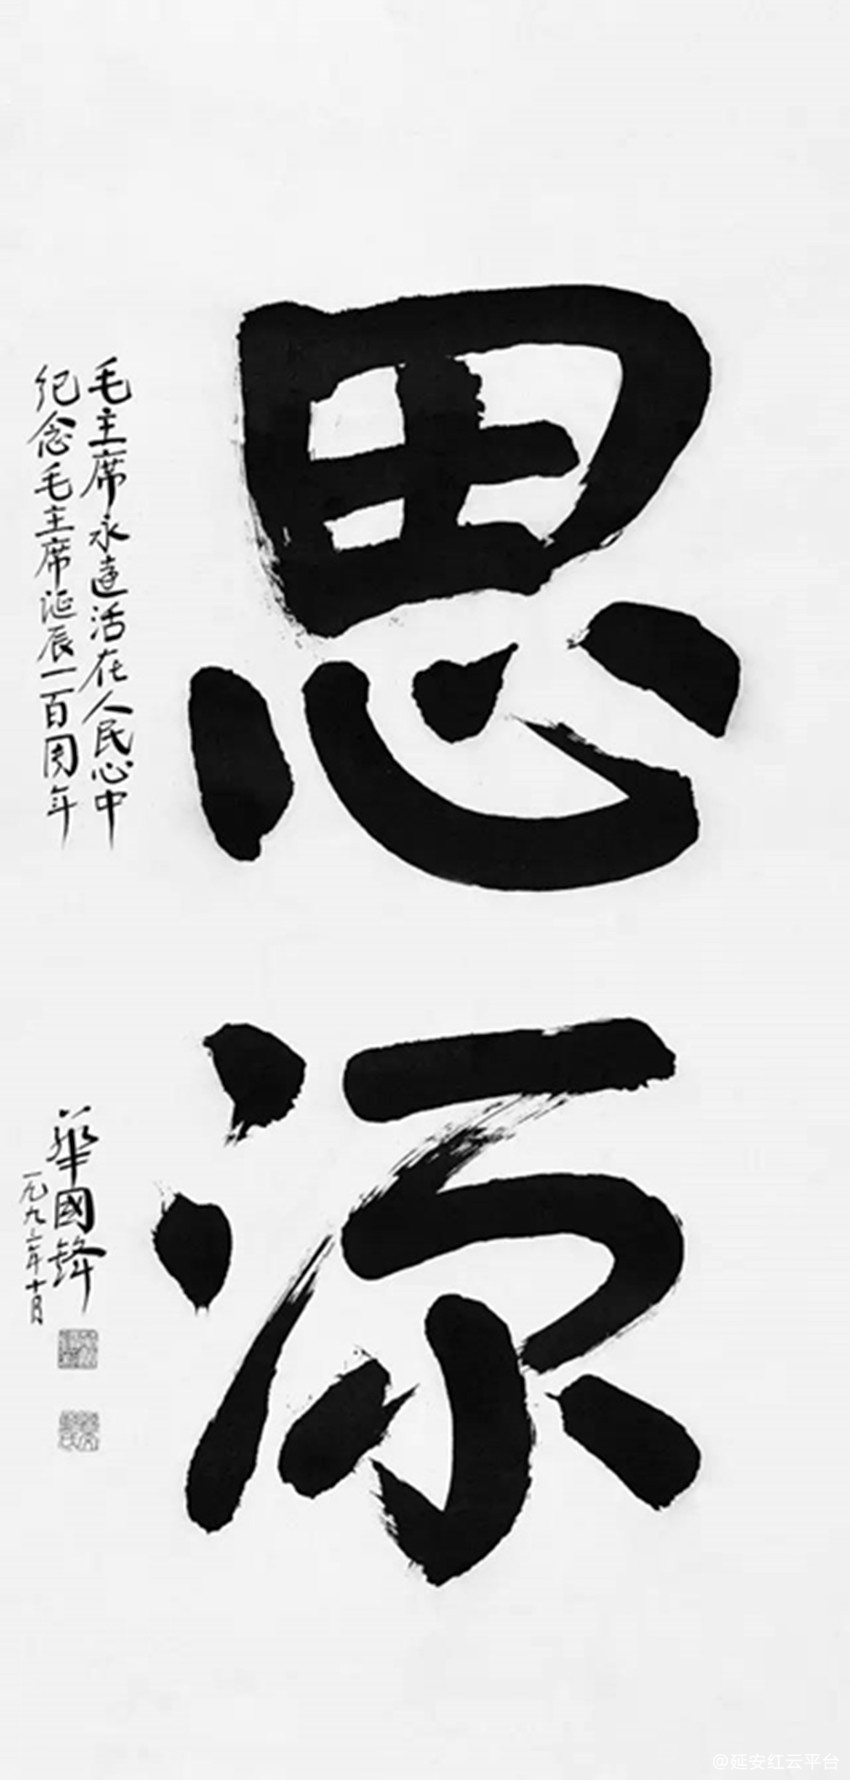 思源
毛主席永遠活在人民心中
纪念毛主席诞辰一百周年
華國鋒
一九九二年十月
@延安红云平台